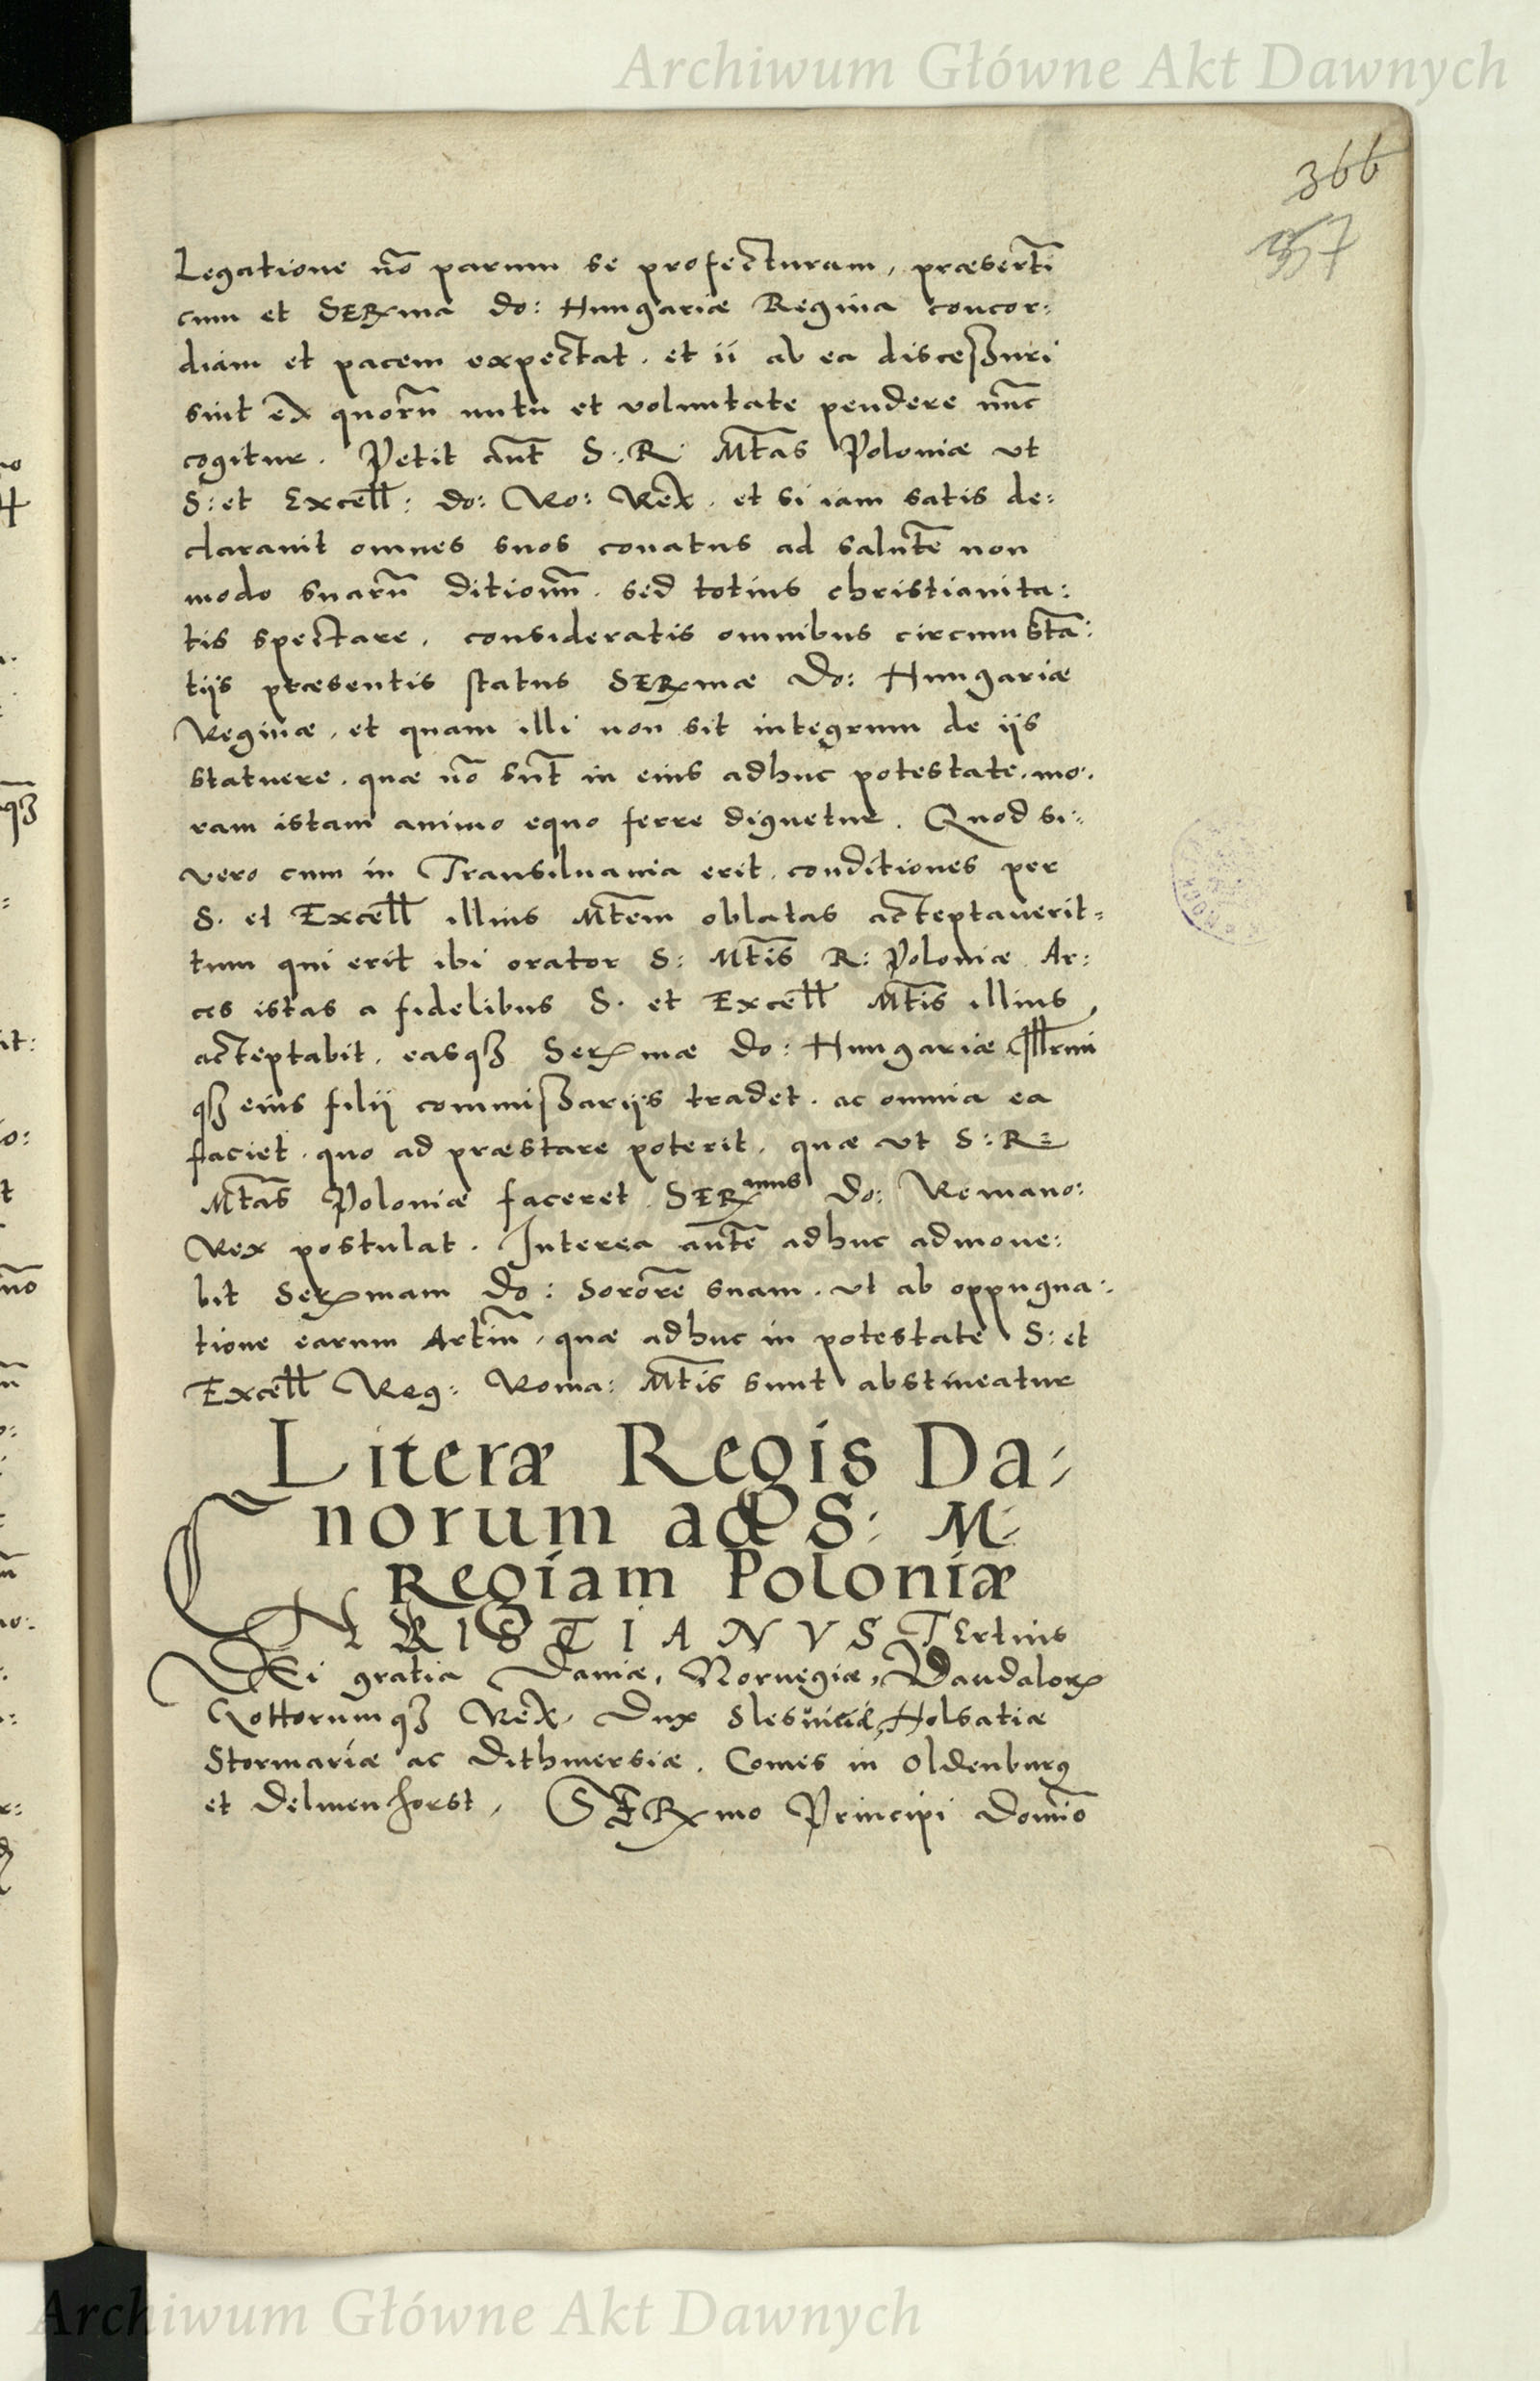 Archiwum Główne Akt Dawnych
366
Legatione nō parum se profecturam, præsertī
cum et SERma do: Hungariæ Regina concor:
diam et pacem expectat. et ii ab ea discessuri
sint ex quorū nutu et voluntate pendere nūc
cogitur. Petit aūt S: R Mtas Poloniæ vt
S: et Excell: do: Ro: Rex. et si iam satis de:
clarauit omnes suos conatus ad salutē non
modo suarū ditionū. sed totius christianita:
tis spectare, consideratis omnibus circumstā:
tijs præsentis status SERmæ Do: Hungariæ
Reginæ, et quam illi non sit integrum de ijs
statuere. quæ nō sūt in eius adhuc potestate. mo:
ram istam animo equo ferre dignetur. Quod si:
vero cum in Transiluania erit, conditiones per
S. et Excell illius Mtem oblatas acceptauerit=
tum qui erit ibi orator S: Mtis R: Poloniæ Ar:
ces istas a fidelibus S. et Excell Mtis illius
acceptabit, easqꝫ Sermæ Do: Hungariæ Illrmi
qꝫ eius filij commissarijs tradet. ac omnia ea
faciet. quo ad præstare poterit, quæ vt S: R=
Mtas Poloniæ faceret. SERmus Do: Romano:
Rex postulat. Interea autē adhuc admone:
bit Sermam Do: Sororē suam. vt ab oppugna:
tione earum Arciū, quæ adhuc in potestate S: et
Excell Reg: Roma: Mtis sunt abstineatur
Literæ Regis Da,
norum ad S: M:
Regiam Poloniæ
CHRISTIANVS TErtius
DEi gratia Daniæ, Noruegiæ, Vandalorꝝ
Gottorumqꝫ Rex, Dux Slesuiciæ, Holsatiæ
Stormariæ ac Dithmersiæ. Comes in Oldenburg
et Delmenhorst, SERmo Principi Domīo
Archiwum Główne Akt Dawnych